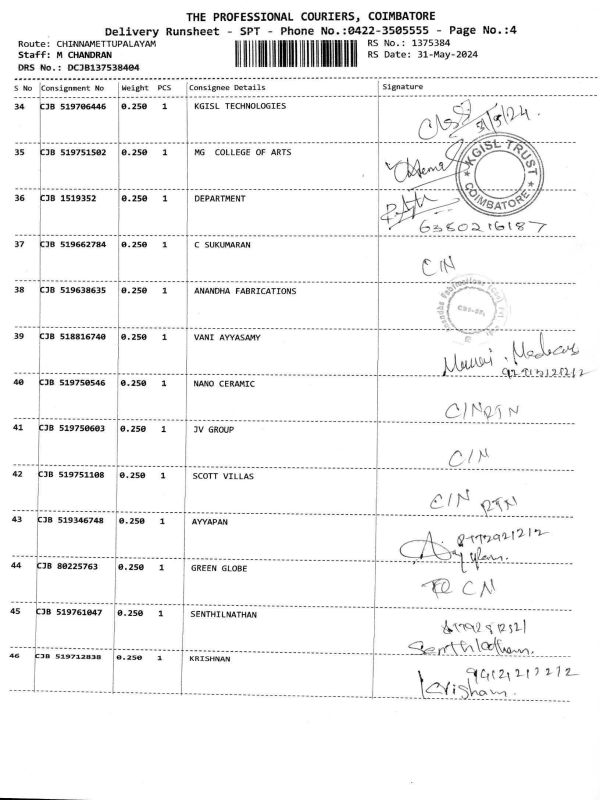 THE PROFESSIONAL COURIERS, COIMBATORE
Delivery Runsheet - SPT - Phone No.:0422-3505555 - Page No.:4
Route: CHINNAMETTUPALAYAM RS No.: 1375384
Staff: M CHANDRAN RS Date: 31-May-2024
DRS No.: DCJB137538404
S No Consignment No Weight PCS Consignee Details Signature
34 CJB 519706446 0.250 1 KGISL TECHNOLOGIES
35 CJB 519751502 0.250 1 MG COLLEGE OF ARTS
KGISL TRUST
COIMBATORE
36 CJB 1519352 0.250 1 DEPARTMENT
6380216187
37 CJB 519662784 0.250 1 C SUKUMARAN CIN
38 CJB 519638635 0.250 1 ANANDHA FABRICATIONS
39 CJB 518816740 0.250 1 VANI AYYASAMY
40 CJB 519750546 0.250 1 NANO CERAMIC C/N RTN
41 CJB 519750603 0.250 1 JV GROUP C/N
42 CJB 519751108 0.250 1 SCOTT VILLAS C/N RTN
43 CJB 519346748 0.250 1 AYYAPAN
44 CJB 80225763 0.250 1 GREEN GLOBE CN
45 CJB 519761047 0.250 1 SENTHILNATHAN
46 CJB 519712838 0.250 1 KRISHNAN